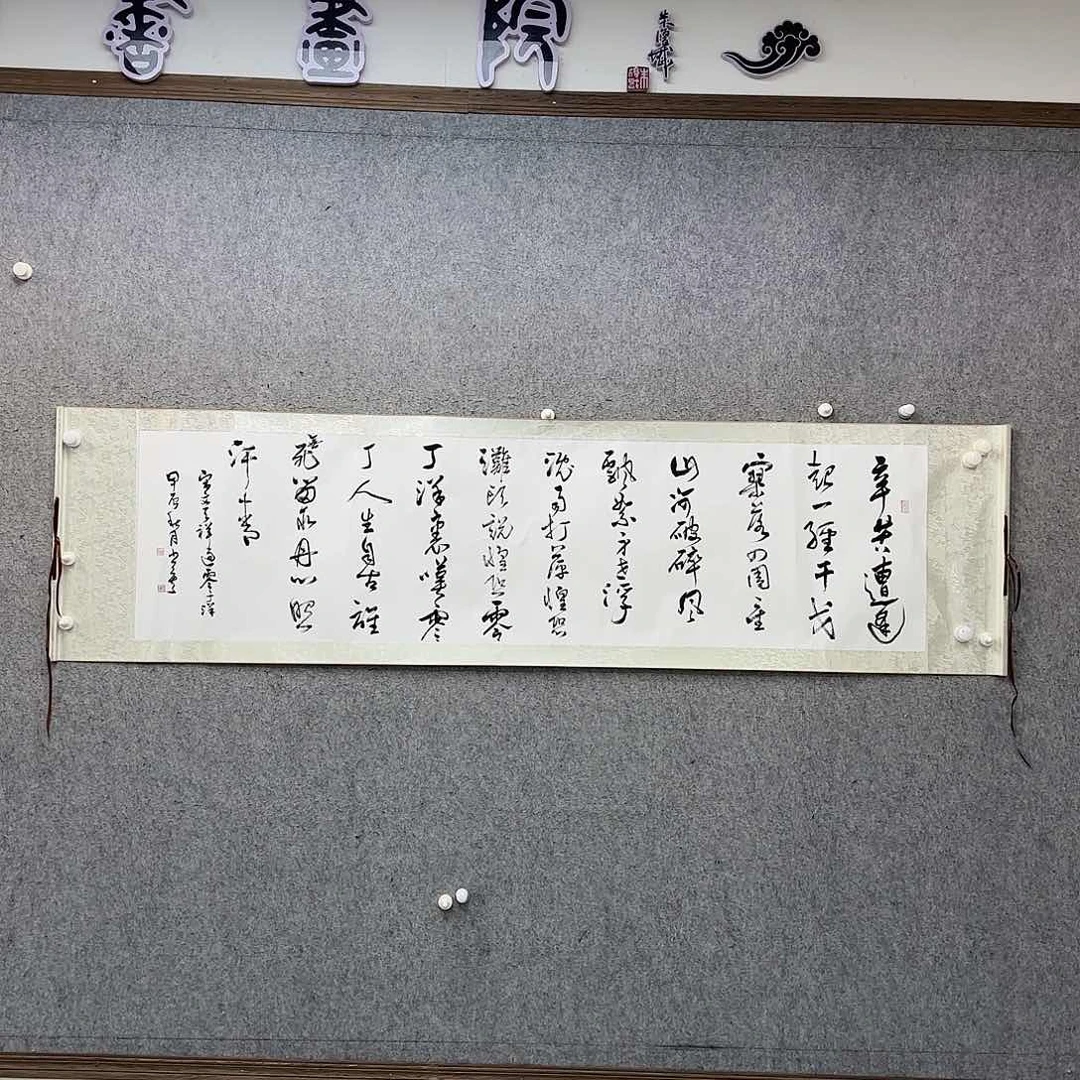 書畫院
辛苦遭逢
起一經干戈
寥落四周星
山河破碎风
飄絮身世浮
沉雨打萍惶恐
灘頭說惶恐零
丁洋裏嘆零
丁人生自古誰
無死留取丹心照
汗青
宋文天祥過零丁洋
甲辰秋月